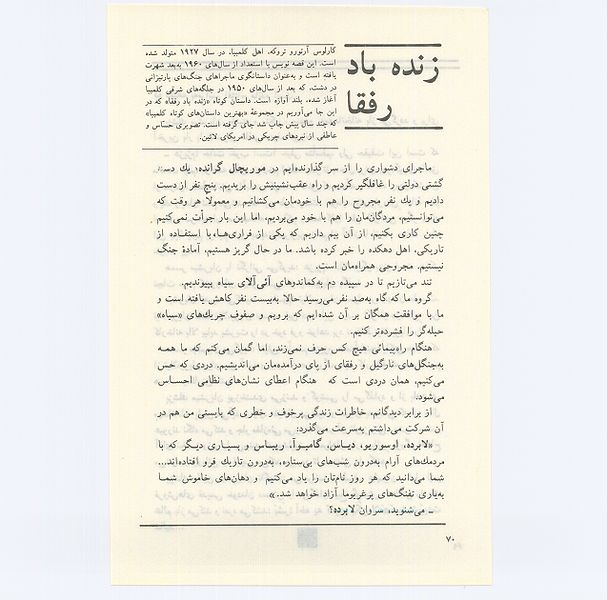 زنده باد
رفقا
کارلوس آرتورو تروکه. اهل کلمبیا، در سال ۱۹۲۷ متولد شده
است. این قصه نویس با استعداد از سال‌های ۱۹۶۰ به‌بعد شهرت
یافته است و به‌عنوان داستانگوی ماجراهای جنگ‌های پارتیزانی
در دشت، که بعد از سال‌های ۱۹۵۰ در جلگه‌های شرقی کلمبیا
آغاز شده، بلند آوازه است. داستان کوتاه «زنده باد رفقا» که در
این جا می‌آوریم در مجموعهٔ «بهترین داستان‌های کوتاه کلمبیا»
که چند سال پیش چاپ شد جای گرفته است. تصویری حسّاس و
عاطفی از نبردهای چریکی در امریکای لاتین.
ماجرای دشواری را از سر گذارنده‌ایم در موریچال گرانده؛ یك دسته
گشتی دولتی را غافلگیر کردیم و راه عقب‌نشینیش را بریدیم. پنج نفر از دست
دادیم و یك نفر مجروح را هم با خودمان می‌کشانیم و معمولاً هر وقت که
می‌توانستیم، مردگان‌مان را هم با خود می‌بردیم، اما این بار جرأت نمی‌کنیم
چنین کاری بکنیم. از آن بیم داریم که یکی از فراری‌ها، با استفاده از
تاریکی، اهل دهکده را خبر کرده باشد. ما در حال گریز هستیم. آمادهٔ جنگ
نیستیم. مجروحی همراه‌مان است.
تند می‌تازیم تا در سپیده دم به‌کماندوهای آئی‌آلای سیاه بپیوندیم.
گروه ما که گاه به‌صد نفر می‌رسید حالا به‌بیست نفر کاهش یافته است و
ما با موافقت همگان بر آن شده‌ایم که برویم و صفوف چریك‌های «سیاه»
حیله‌گر را فشرده‌تر کنیم.
هنگام راه‌پیمائی هیچ کس حرف نمی‌زند، اما گمان می‌کنم که ما همه
به‌جنگل‌های نارگیل و رفقای از پای درآمده‌مان می‌اندیشیم. دردی که حس
می‌کنیم، همان دردی است که هنگام اعطای نشان‌های نظامی احسـاس
می‌شود.
از برابر دیدگانم، خاطرات زندگی پرخوف و خطری که بایستی من هم در
آن شرکت می‌داشتم به‌سرعت می‌گذرد:
«لابرده، اوسوریو، دیـاس، گامبوآ، ریبـاس و بسیاری دیگر که با
مردمك‌های آرام به‌درون شب‌های بی‌ستاره، به‌درون تاریك فرو افتاده‌اند...
شما می‌دانید که هر روز نام‌تان را یاد می‌کنیم و دهان‌های خاموش شمـا
به‌یاری تفنگ‌های پرغریوما آزاد خواهد شد.»
ـ می‌شنوید، سروان لابرده؟
۷۰